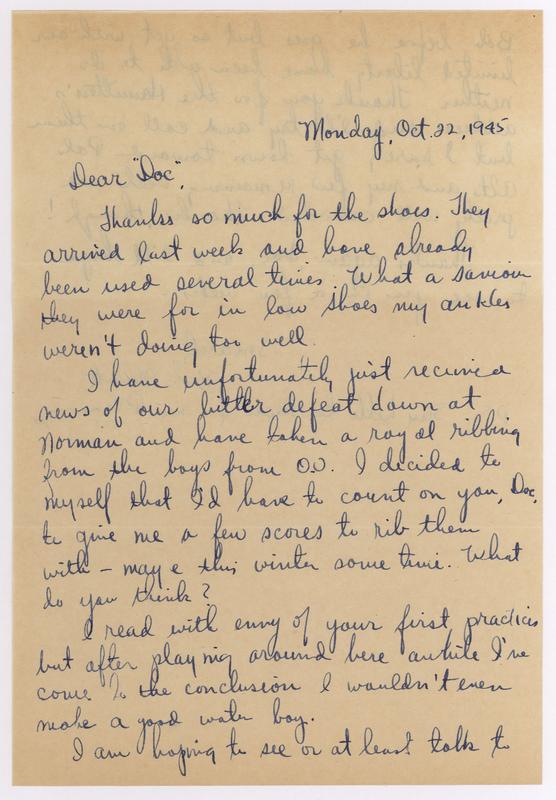 Monday, Oct. 22, 1945
Dear "Doc",
Thanks so much for the shoes. They
arrived last week and have already
been used several times. What a saviour
they were for in low shoes my ankles
weren't doing too well.
I have unfortunately just received
news of our bitter defeat down at
Norman and have taken a royal ribbing
from the boys from O.U. I decided to
myself that I'd have to count on you, Doc,
to give me a few scores to rib them
with – maye this winter some time. What
do you think?
I read with envy of your first practices
but after playing around here awhile I've
come to the conclusion I wouldn't even
make a good water boy.
I am hoping to see or at least talk to